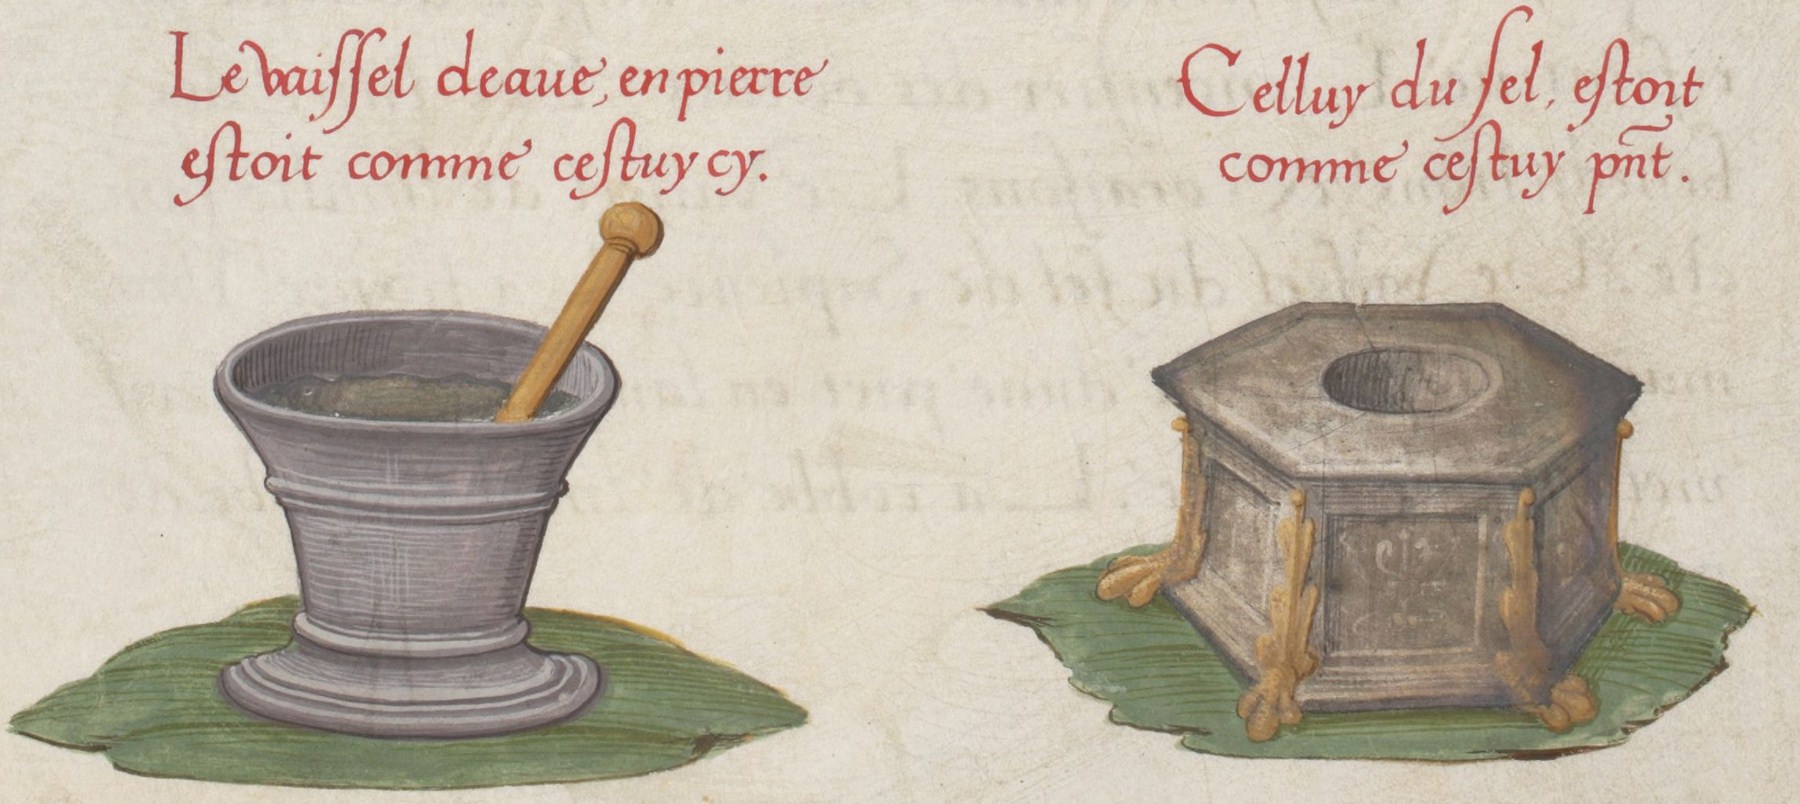 Le vaissel deaue, en pierre
estoit comme cestuy cy.
Celluy du sel, estoit
comme cestuy pñt.